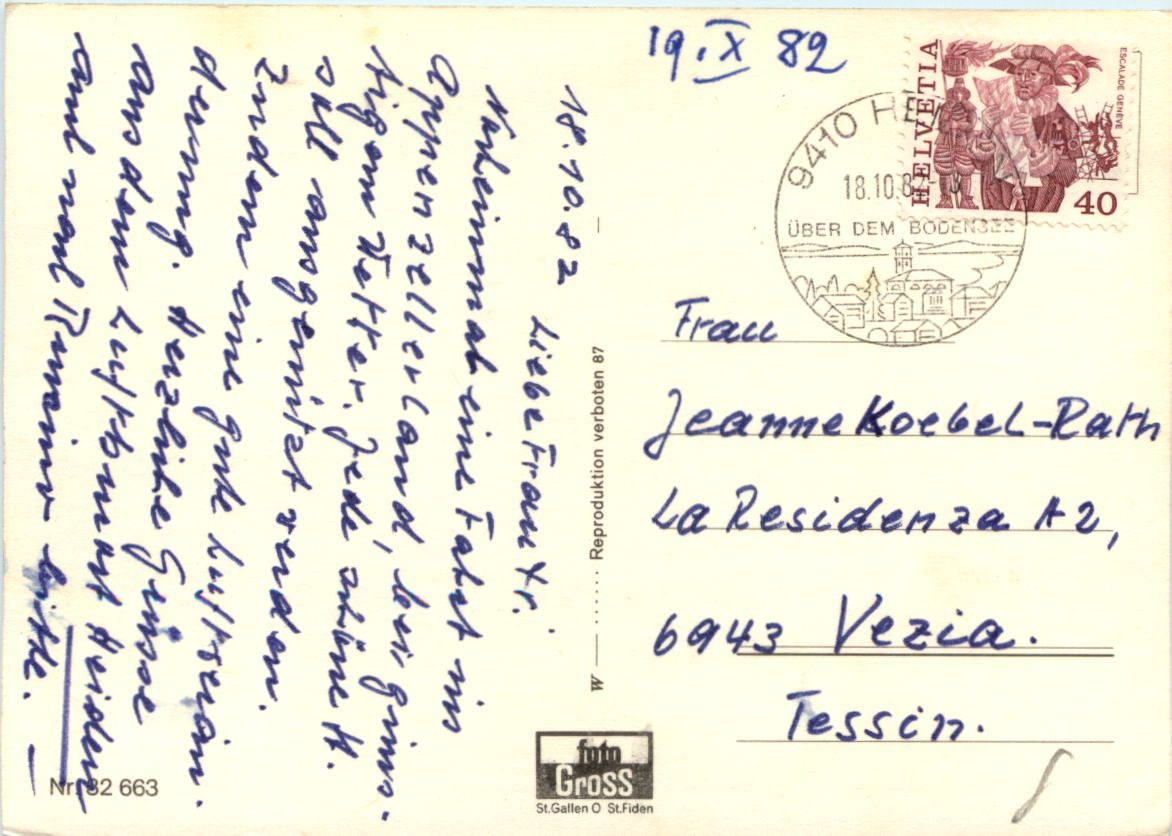 18.10.82 Liebe Frau Kr.
Nocheinmal eine Fahrt ins
Appenzellerland, bei güns-
tigem Wetter. Jede schöne H.
soll ausgenützt werden.
Zudem eine gute Luftverän-
derung. Herzliche Grüsse
aus dem Luftkurort Heiden
auch noch Romino bitte.
Nr. 32 663
W — ...... Reproduktion verboten 87 —
foto
Gross
St.Gallen O St.Fiden
19. IX 82
HELVETIA
ESCALADE GENÈVE
40
9410
18.10.8
ÜBER DEM BODENSEE
Frau
Jeanne Koebel-Rath
La Residenza A2,
6943 Vezia.
Tessin.